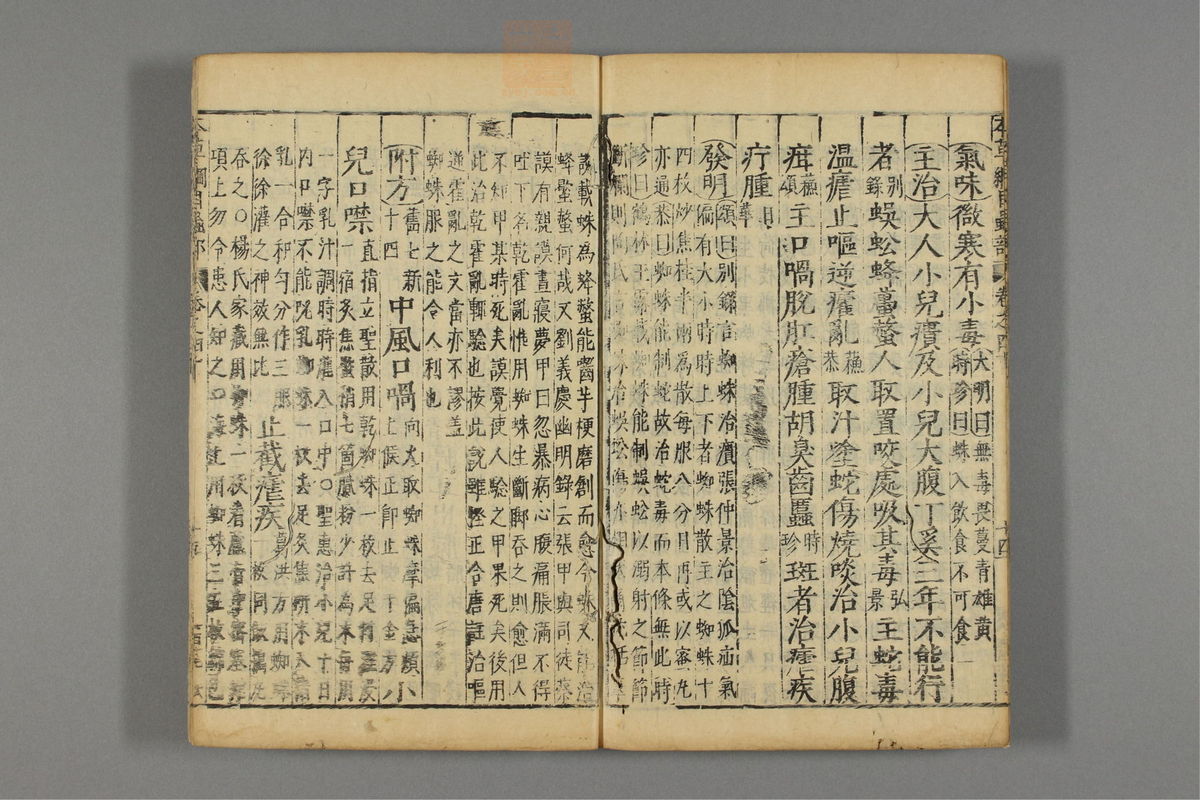 氣味微寒有小毒大明曰無毒畏蔓青雄黃時珍曰蛛入飲食不可食
主治大人小兒㿉及小兒大腹丁奚三年不能行
者别錄蜈蚣蜂蠆螫人取置咬處吸其毒弘景主蛇毒
溫瘧止嘔逆癨亂蘇恭取汁塗蛇傷燒啖治小兒腹
疳蘇頌主口喎脫肛瘡腫胡臭齒䘌時珍斑者治瘧疾
疔腫日華
發明頌曰别錄言蜘蛛治㿉張仲景治陰狐疝氣
偏有大小時時上下者蜘蛛散主之蜘蛛十
四枚炒焦桂半兩為散每服八分日再或以蜜丸
亦通恭曰蜘蛛能制蛇故治蛇毒而本條無此時
珍曰鶴林玉露載蜘蛛能制蜈蚣以溺射之節節
斷爛則
議載蛛為蜂螫能齧芋梗磨創而愈今蛛又能治
蜂蜇螫何哉又劉義慶幽明錄云張甲與司徒蔡
謨有親謨晝寢夢甲曰忽暴病心腹痛脹滿不得
吐下名乾霍亂惟用蜘蛛生斷腳吞之則愈但人
不知甲某時死矣謨覺使人驗之甲果死矣後用
此治乾霍亂輒驗也按此說雖怪正合唐註治嘔
逆霍亂之文當亦不謬蓋
蜘蛛服之能令人利也
附方舊七新十四中風口喎向火取蜘蛛摩偏急頰上候正即止千金方小
兒口噤直指立聖散用乾蜘蛛一枚去足竹瀝浸一宿炙焦蠍梢七箇膩粉少許為末每用
一字乳汁調時時灌入口中○聖惠治小兒十日
內口噤不能吮乳蜘蛛一枚去足炙焦研末入
乳一合和勻分作三服徐徐灌之神效無比止截瘧疾葛洪方用蜘蛛一枚同飯搗丸
吞之○楊氏家藏用蜘蛛一枚著蘆管中密塞綰
項上勿令患人知之○海上用蜘蛛三五枚綿包